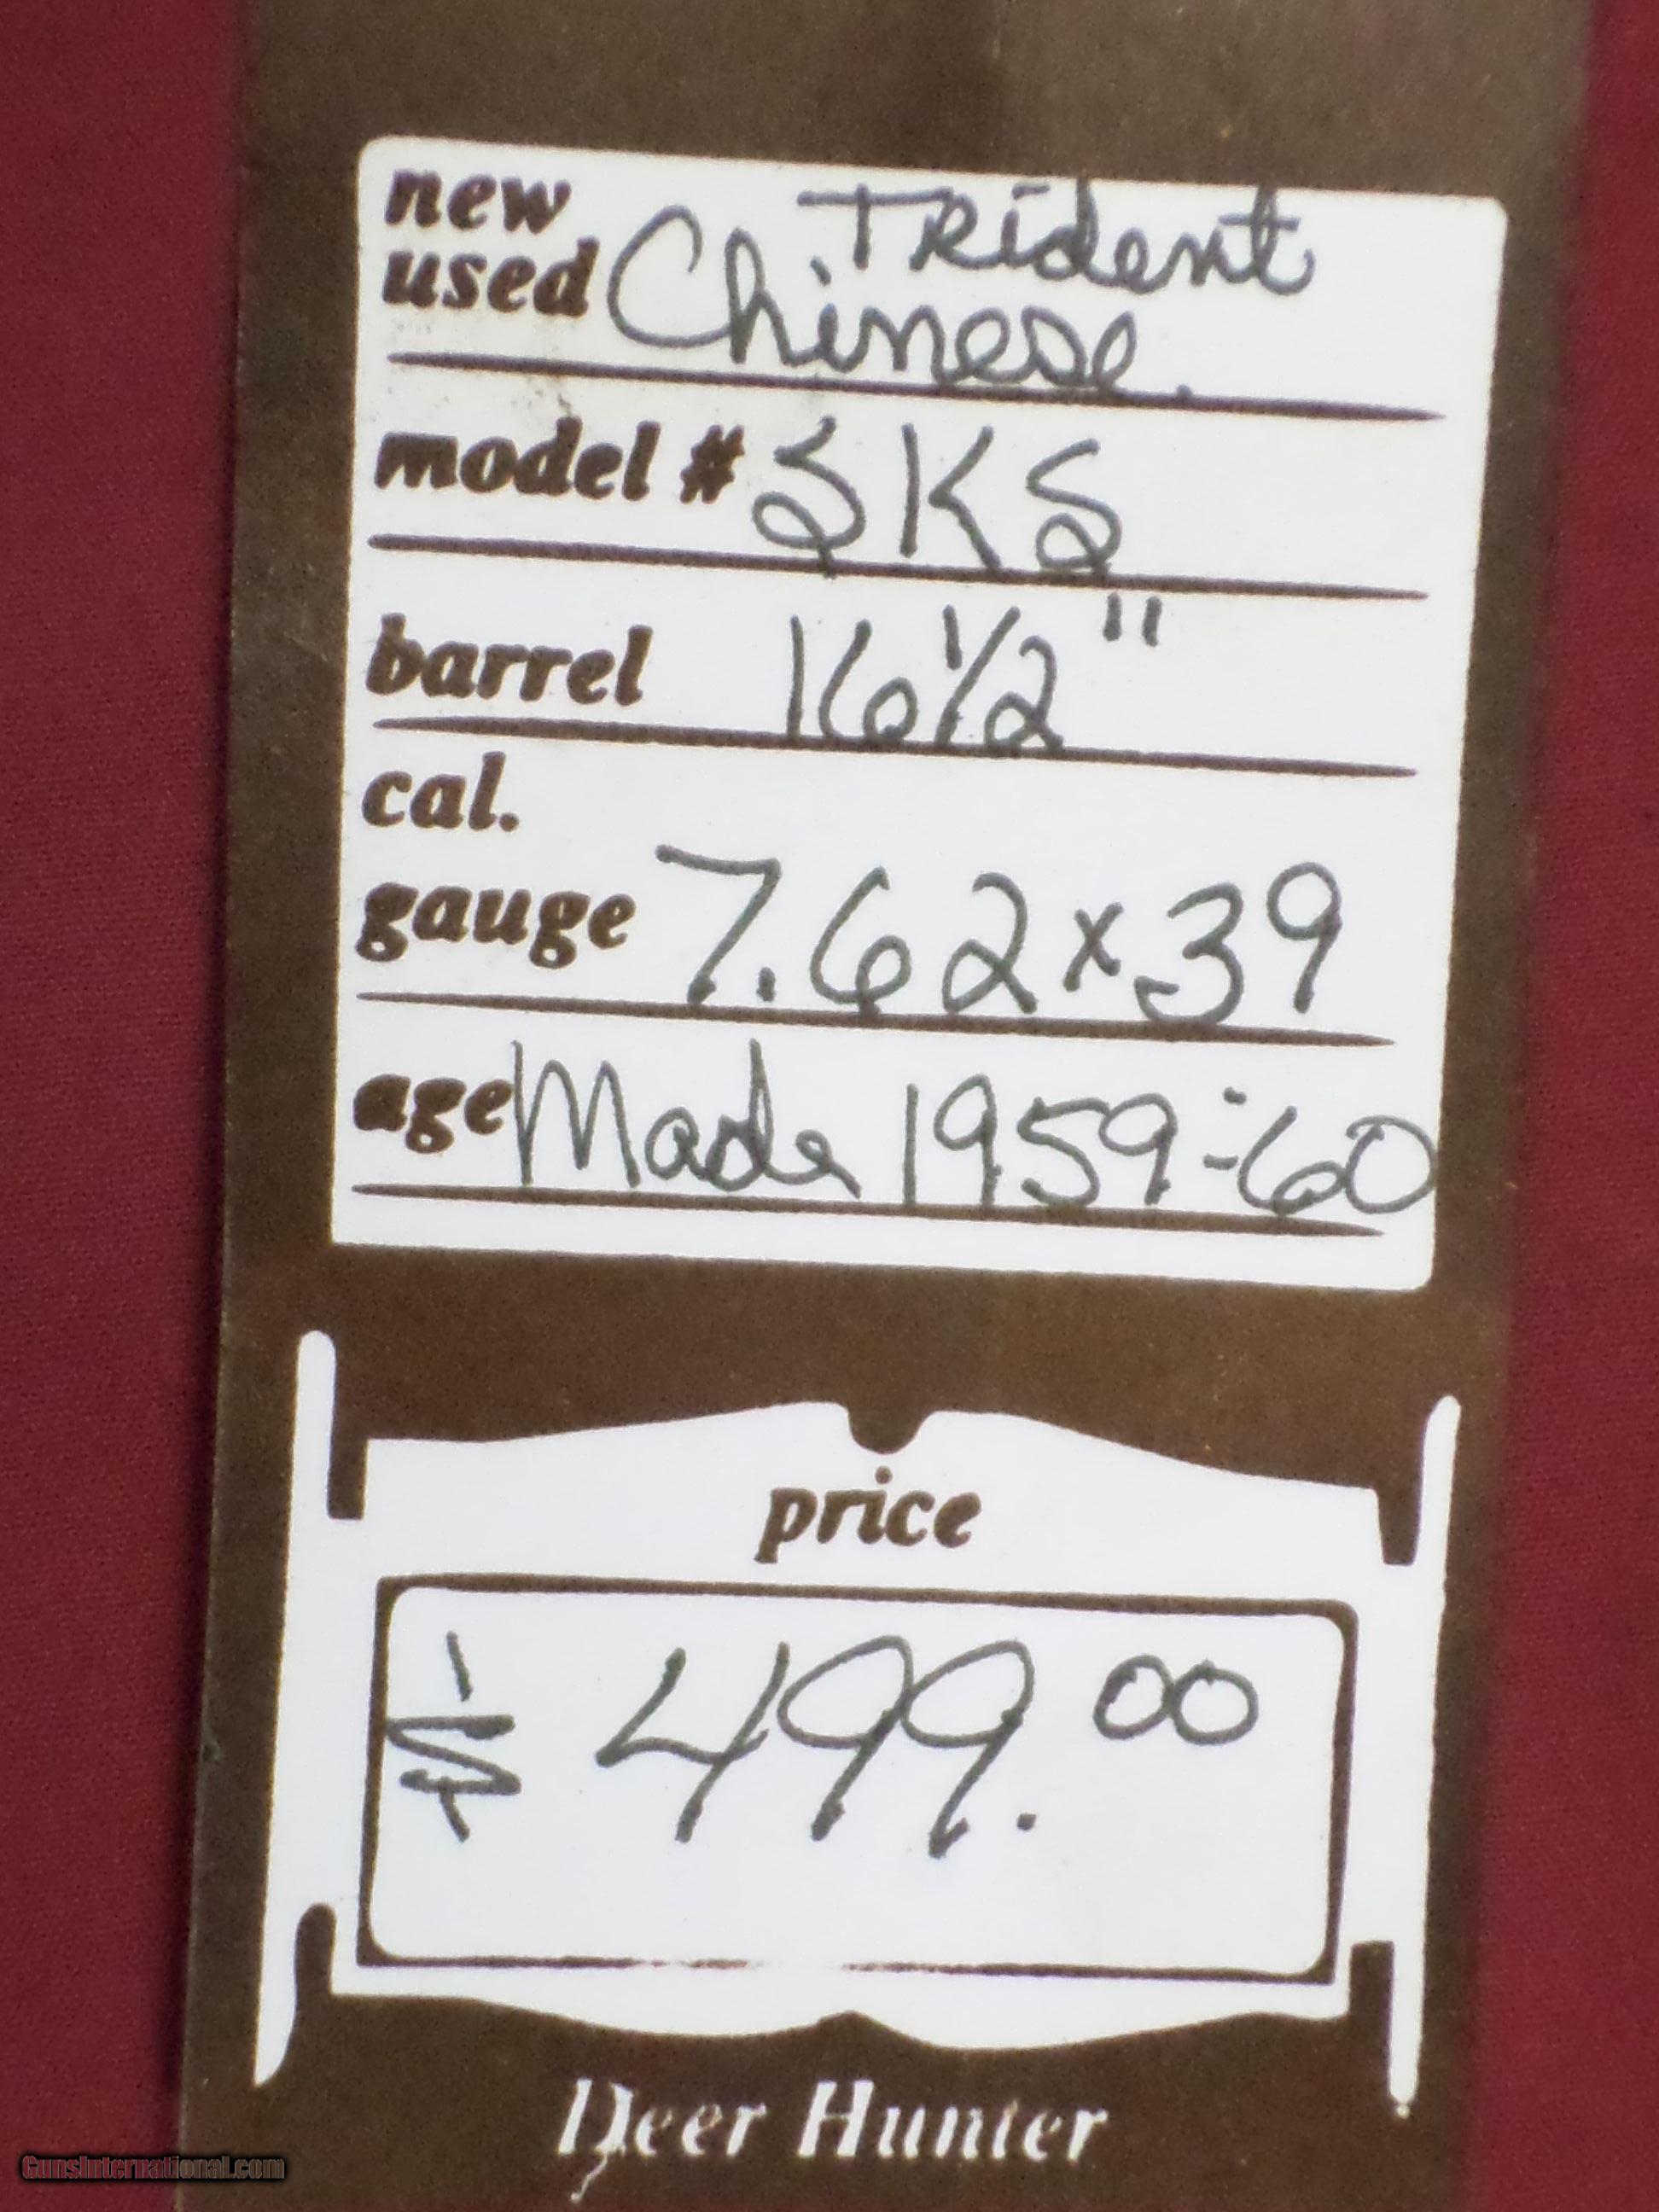 new Trident
used Chinese.
model # SKS
barrel 16 1/2"
cal.
gauge 7.62x39
age Made 1959-60
price
$ 499.00
Deer Hunter
GunsInternational.com